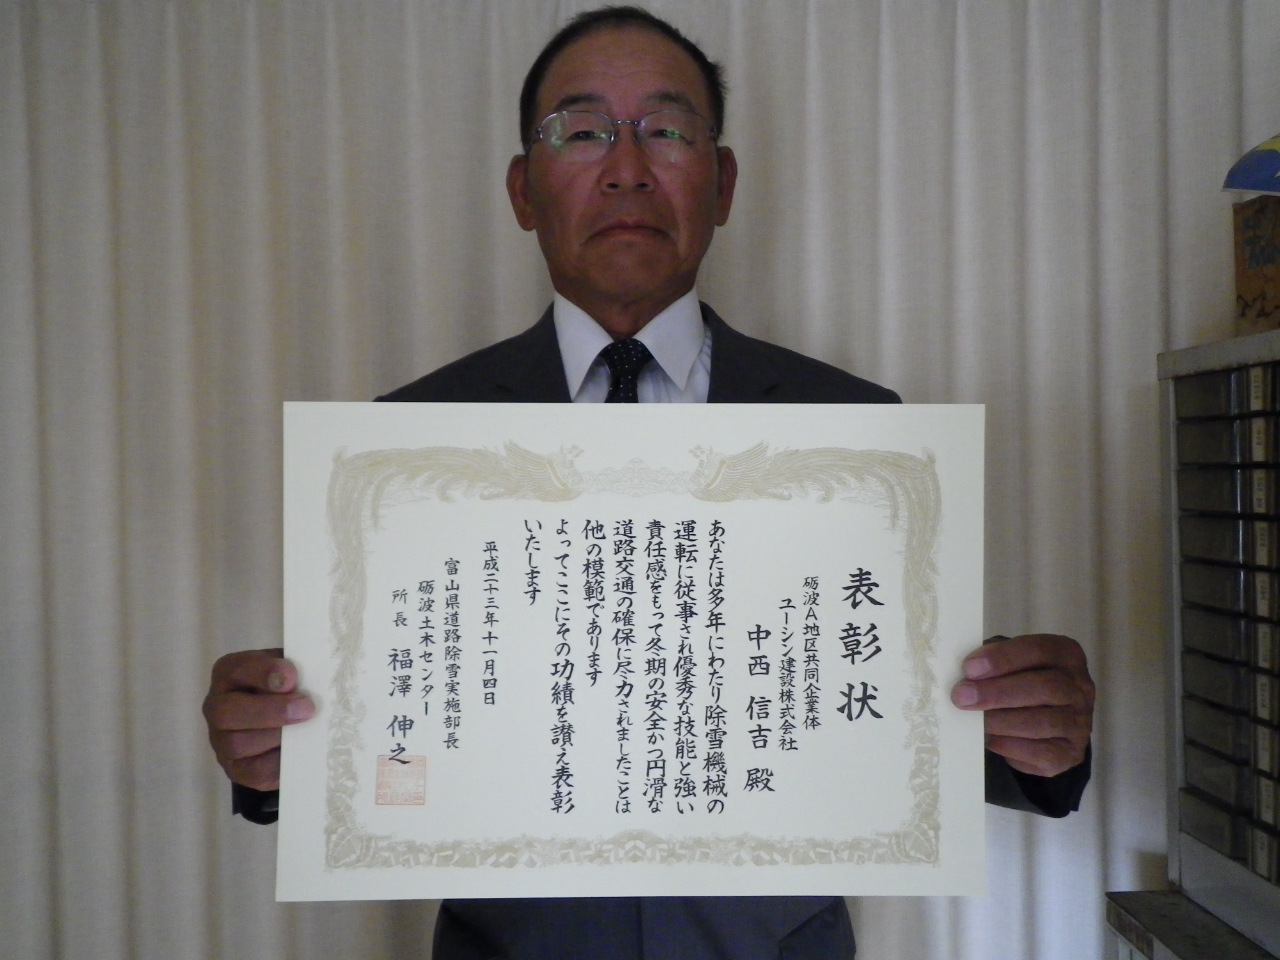 表彰状
砺波A地区共同企業体
ユーシン建設株式会社
中西 信吉 殿
あなたは多年にわたり除雪機械の
運転に従事され優秀な技能と強い
責任感をもって冬期の安全かつ円滑な
道路交通の確保に尽力されましたことは
他の模範であります
よってここにその功績を讃え表彰
いたします
平成二十三年十一月四日
富山県道路除雪実施部長
砺波土木センター
所長 福澤 伸之